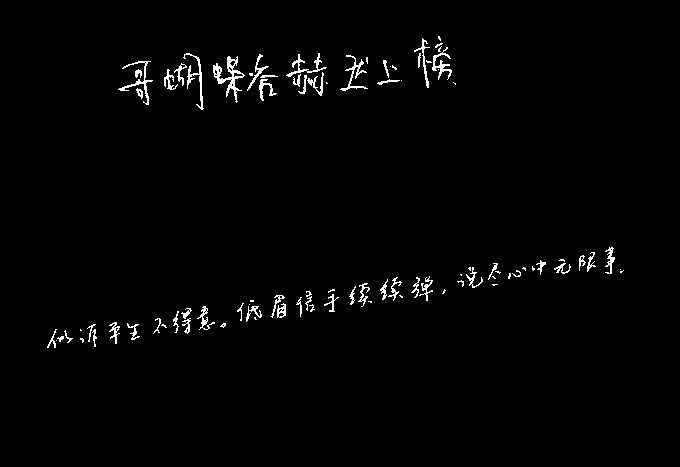 哥蝴蝶谷赫然上榜
似诉平生不得意。低眉信手续续弹，说尽心中无限事。